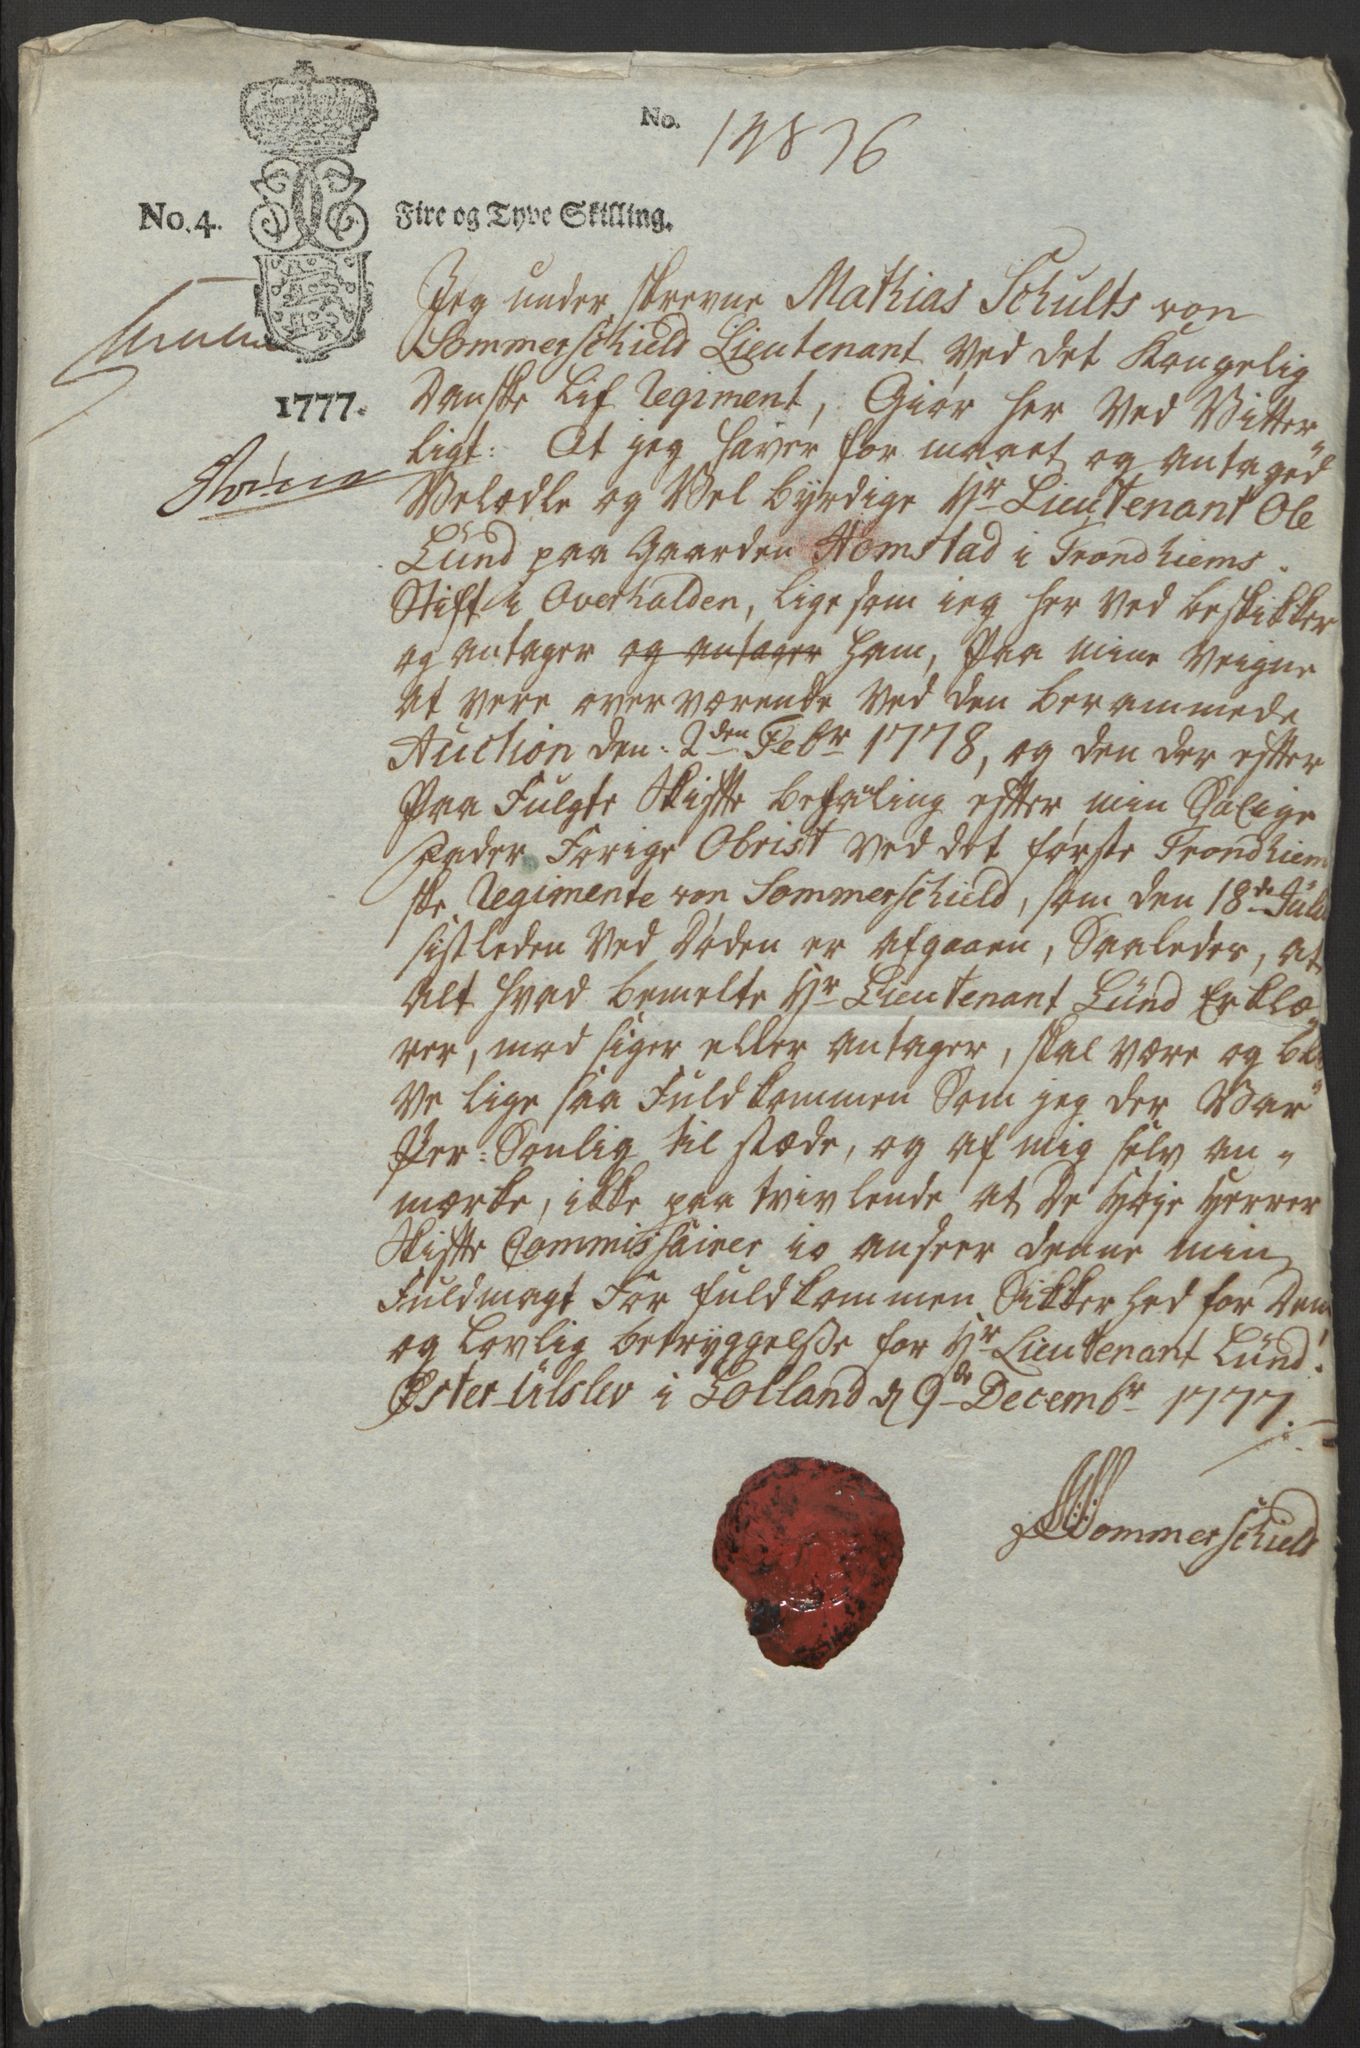 No.
14836
No. 4. Fire og Tyve Skilling.
1777.
Jeg under skrevne Mathias Schults von
Sommerschield Lieutenant Ved det Kongelig
Danske Lif Regiment, Giør her Ved Vitter„
ligt: At jeg haver for maaet og antaged
Velædle og Vel byrdige Hr Lieutenant Ole
Lund paa Gaarden Homstad i Trondhiems
Stift i Overhalden, lige som ieg her Ved beskikker
og antager og antager ham, Paa mine Veigne
at vere overværende Ved den berammede
Auction den: 2den Febr 1778, og den der efter
Paa Fulgte Skifte behandling efter min Salige
Fader Forige Obrist Ved det første Trondhiem
ske Regimente von Sommerschield, som den 18de Juli
sistleden Ved Døden er afgaaen, Saaledes, at
Alt hvad bemelte Hr Lieutenant Lund Erklæ„
rer, mod siger eller antager, skal være og bli„
ve lige saa Fuldkommen Som jeg der Var
Per: Sonlig til stæde, og af mig selv an„
mærke, ikke paa tvivlende at De Høye Herrer
Skifte Commissairer io anseer denne min
Fuldmagt For fuldkommen Sikkerhed for Dem
og Lovlig betryggelsse for Hr Lieutenant Lund.
Øster-Ulslev i Lolland d 9de Decembr 1777.
Sommerschield